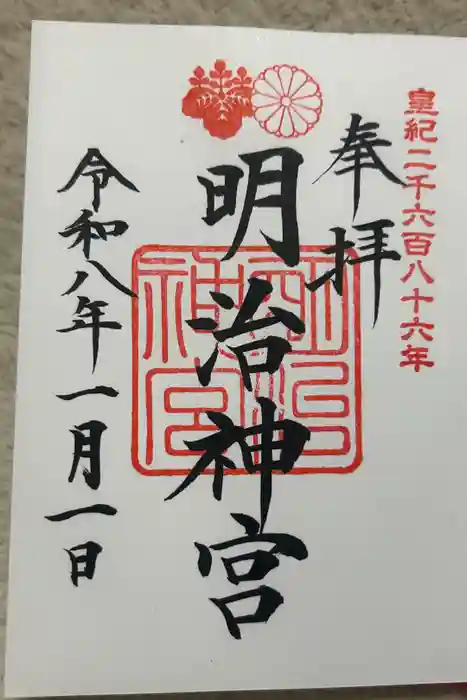 皇紀二千六百八十六年
奉拝
明治神宮
令和八年一月一日
明治神宮